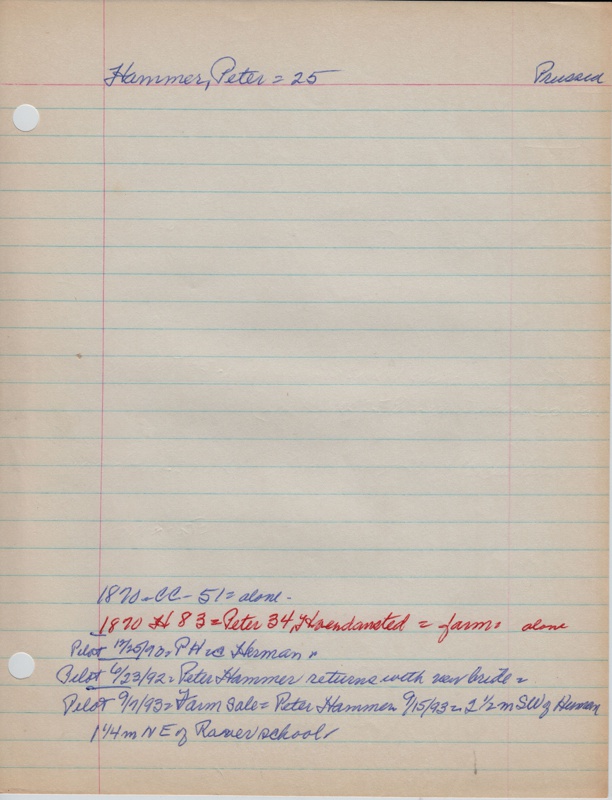 Hammer, Peter = 25 Prussia
1870 - CC - 51 = alone -
1870 H 83 = Peter 34, = farm = alone
Pilot = P H Herman "
Pilot 6/23/92 = Peter Hammer returns with new bride =
Pilot 9/7/93 = Farm Sale = Peter Hammer 9/15/93 = 2 1/2 m SW of
1 1/4 m NE of school